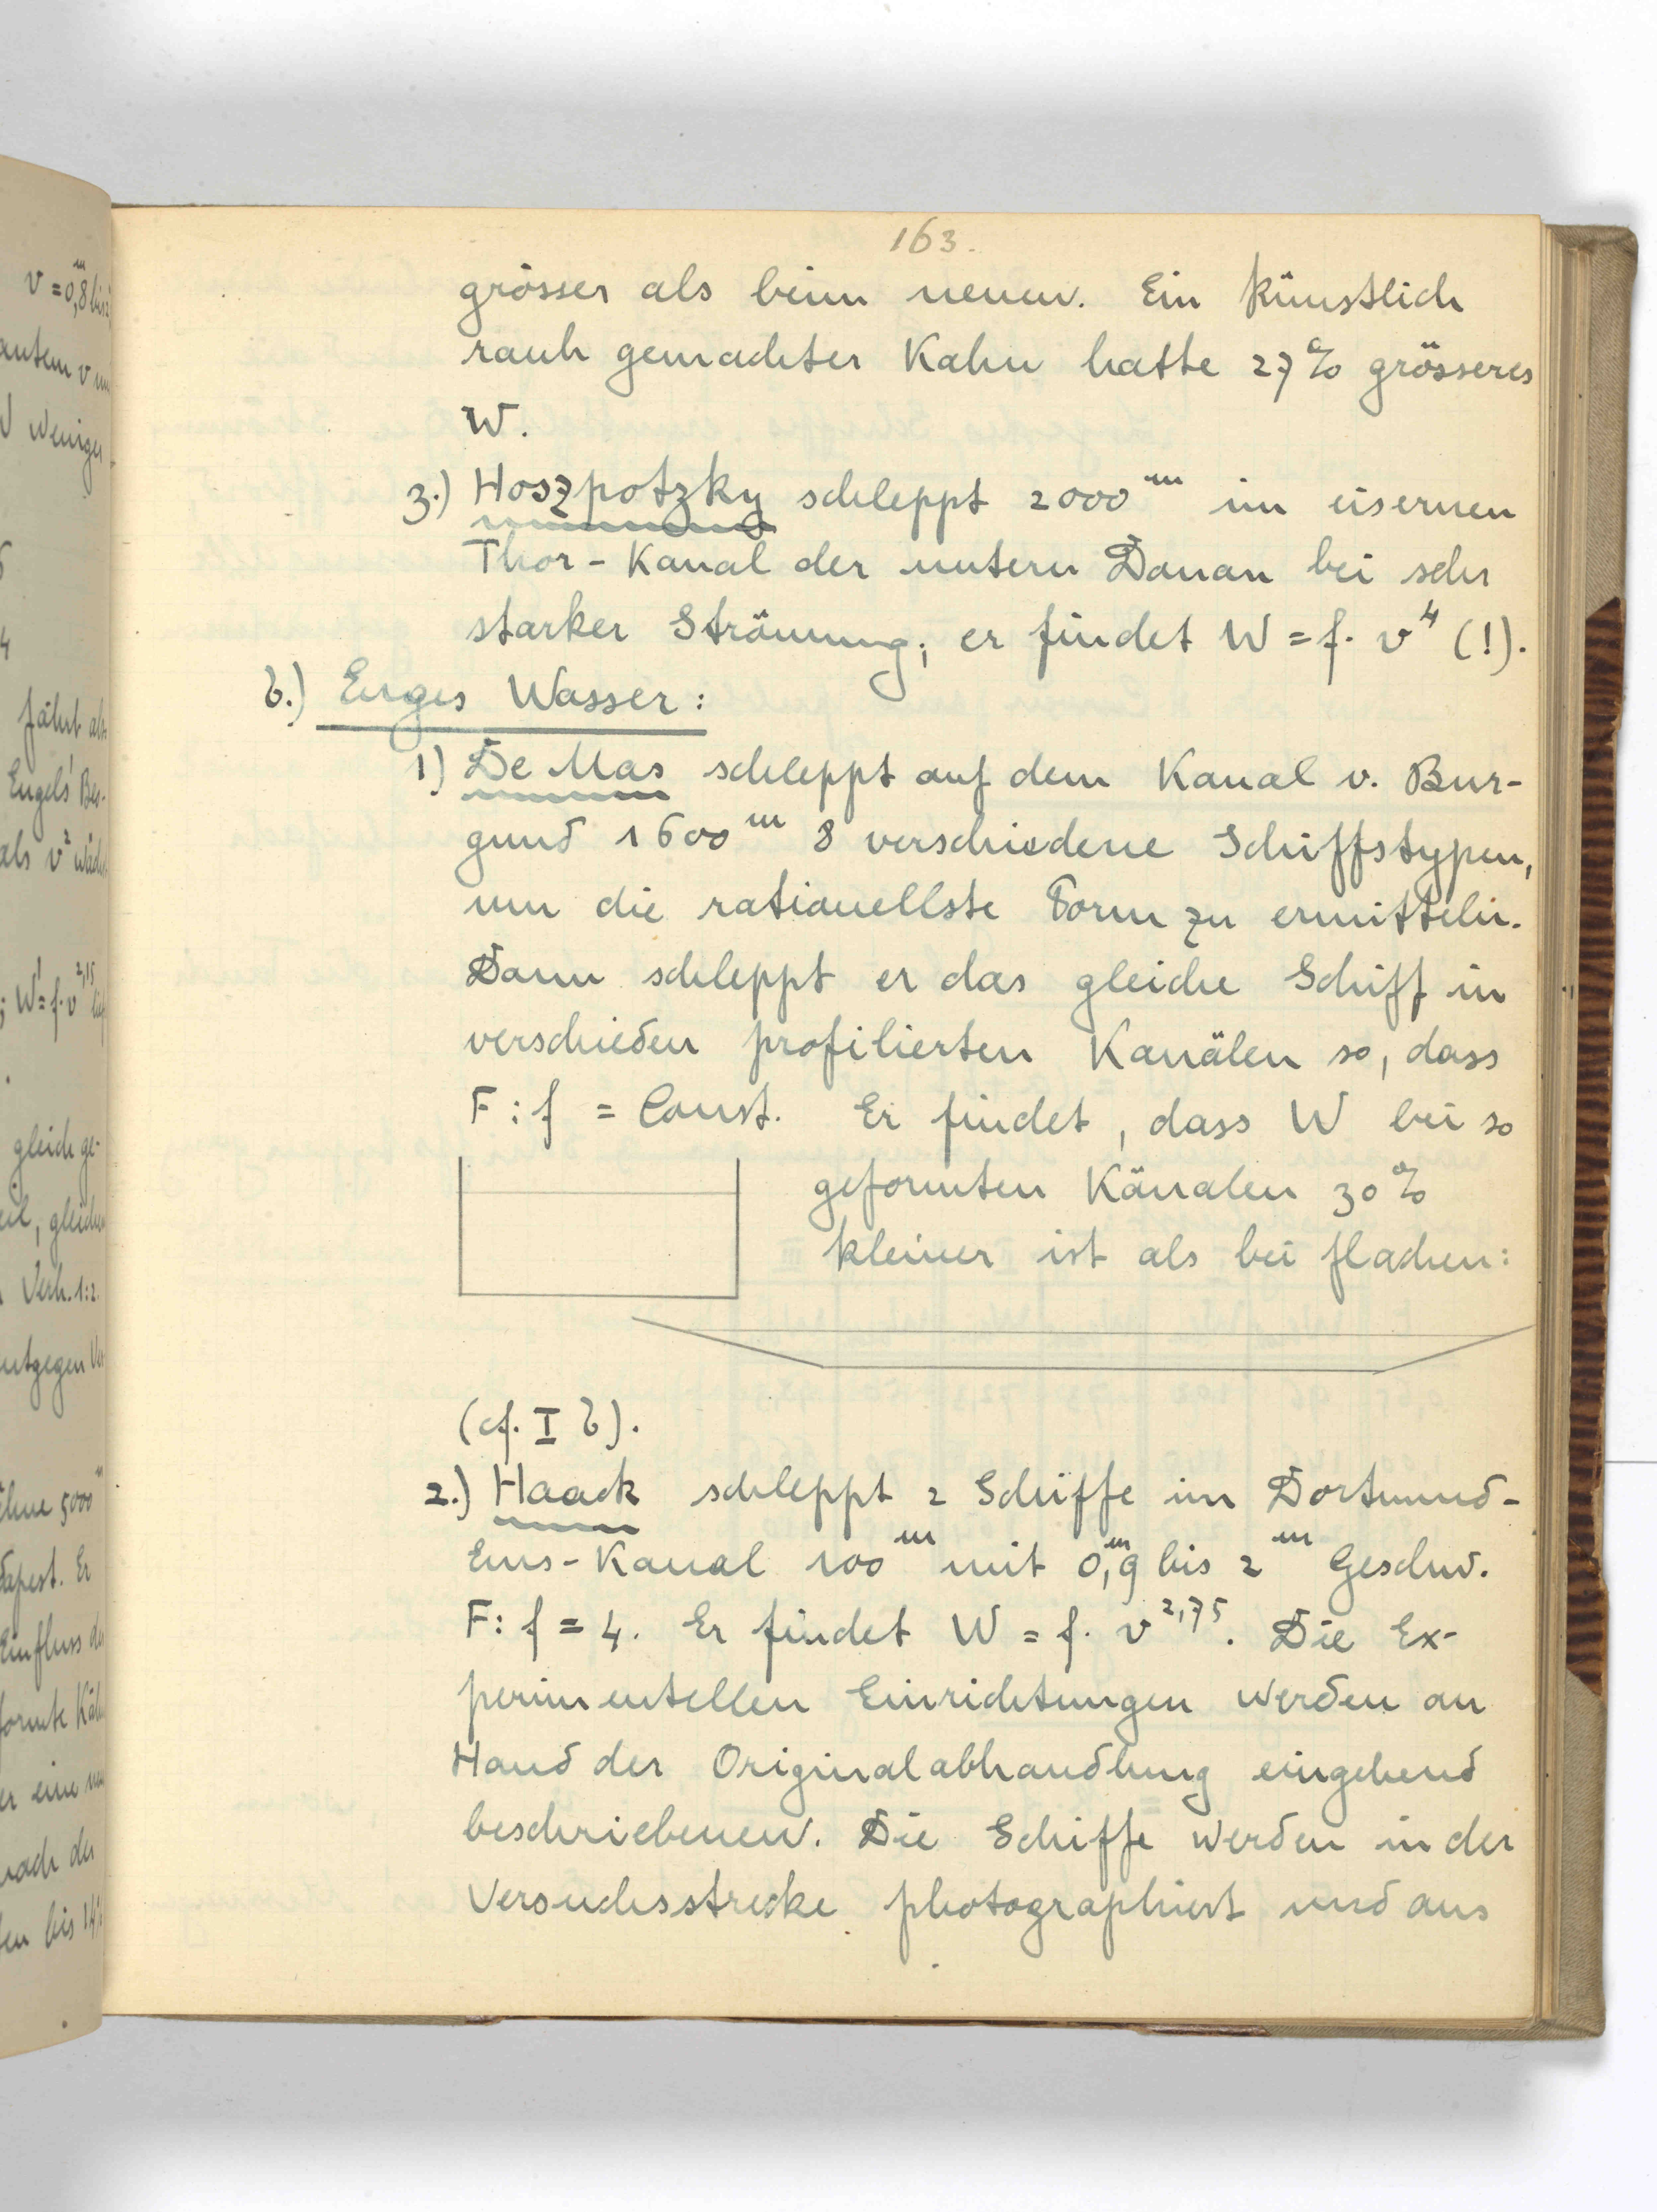 163.
grösser als beim neuen. Ein künstlich
rauh gemachter Kahn hatte 27% grösseres
W.
3.) Hoszpotzky schleppt 2000 m im eisernen
Thor-Kanal der untern Donau bei sehr
starker Strömung; er findet W = f. v⁴ (!).
b.) Enges Wasser:
1) De Mas schleppt auf dem Kanal v. Bur-
gund 1600 m 8 verschiedene Schiffstypen,
um die rationellste Form zu ermitteln.
Dann schleppt er das gleiche Schiff in
verschieden profilierten Kanälen so, dass
F : f = Const. Er findet, dass W bei so
geformten Känalen 30%
kleiner ist als bei flachen:
(cf. I b).
2.) Haack schleppt 2 Schiffe im Dortmund-
Ems-Kanal 100 m mit 0,9 m bis 2 m Geschw.
F : f = 4. Er findet W = f. v^2,75. Die Ex-
perimentellen Einrichtungen werden an
Hand der Originalabhandlung eingehend
beschriebenen. Die Schiffe werden in der
Versuchsstrecke photographiert und aus